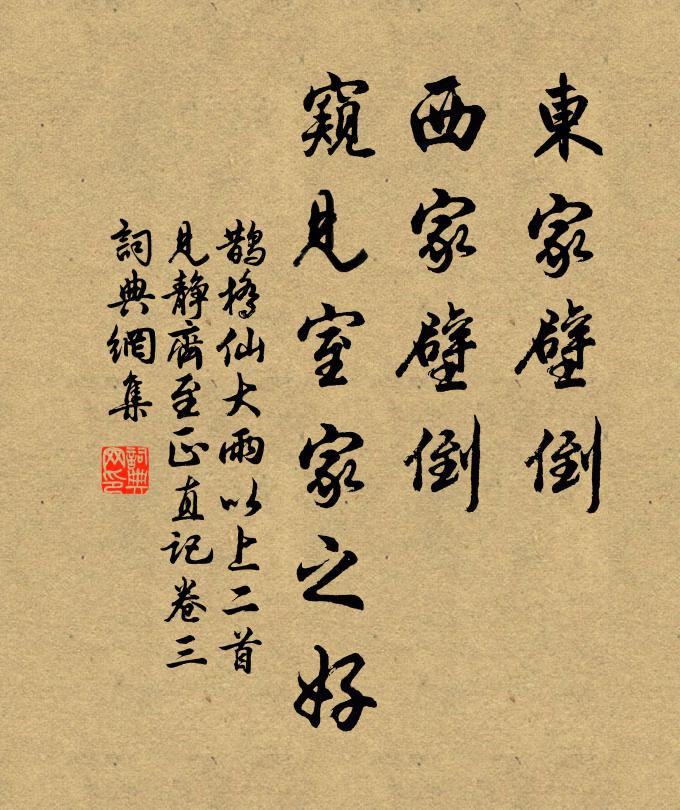 東家壁倒
西家壁倒
窺見室家之好
鵲橋仙大雨以上二首
見静齋至正直记卷三
詞典網集
詞典
网印